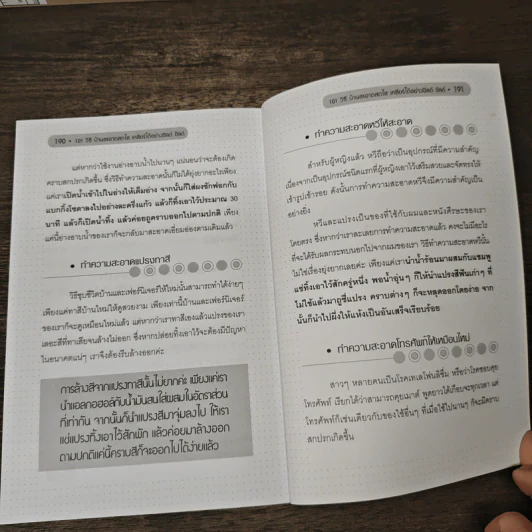 190 • 101 วิธี บ้านสะอาดสดใส เคลียร์ได้อย่างชิลด์ ชิลด์
แต่หากว่าใช้งานอ่างอาบน้ำไปนานๆ แน่นอนว่าจะต้องเกิด
คราบสกปรกเกิดขึ้น ซึ่งวิธีทำความสะอาดนั้นก็ไม่ได้ยุ่งยากอะไรเพียง
แค่เราเปิดน้ำเข้าไปในอ่างให้เต็มอ่าง จากนั้นก็ใส่ผงซักฟอกกับ
แบกกิ้งโซดาลงไปอย่างละครึ่งแก้ว แล้วก็ทิ้งเอาไว้ประมาณ 30
นาที แล้วก็เปิดน้ำทิ้ง แล้วค่อยถูคราบออกไปตามปกติ เพียง
แค่นี้อ่างอาบน้ำของเราก็จะกลับมาสะอาดเอี่ยมอ่องตามเดิมแล้ว
• ทำความสะอาดแปรงทาสี
วิธีชุบชีวิตบ้านและเฟอร์นิเจอร์ให้ใหม่นั้นสามารถทำได้ง่ายๆ
เพียงแค่ทาสีบ้านใหม่ให้ดูสวยงาม เพียงเท่านี้บ้านและเฟอร์นิเจอร์
ของเราก็จะดูเหมือนใหม่แล้ว แต่หากว่าเราทาสีเองแล้วแปรงของเรา
เลอะสีที่ทาเสียจนล้างไม่ออก ซึ่งหากปล่อยทิ้งเอาไว้จะต้องมีปัญหา
ในอนาคตแน่ๆ เราจึงต้องรีบล้างออกค่ะ
การล้างสีจากแปรงทาสีนั้นไม่ยากค่ะ เพียงแค่เรา
นำแอลกอฮอล์กับน้ำมันสนใส่ผสมในอัตราส่วน
ที่เท่ากัน จากนั้นก็นำแปรงสีมาจุ่มลงไป ให้เรา
แช่แปรงทิ้งเอาไว้สักพัก แล้วค่อยมาล้างออก
ตามปกติแค่นี้คราบสีก็จะออกไปได้ง่ายแล้ว
101 วิธี บ้านสะอาดสดใส เคลียร์ได้อย่างชิลด์ ชิลด์ • 191
• ทำความสะอาดหวีให้สะอาด
สำหรับผู้หญิงแล้ว หวีถือว่าเป็นอุปกรณ์ที่มีความสำคัญ
เนื่องจากเป็นอุปกรณ์ชนิดแรกที่ผู้หญิงเอาไว้เสริมสวยและจัดทรงให้
เข้ารูปเข้ารอย ดังนั้นการทำความสะอาดหวีจึงมีความสำคัญเป็น
อย่างยิ่ง
หวีและแปรงเป็นของที่ใช้กับผมและหนังศีรษะของเรา
โดยตรง ซึ่งหากว่าเราละเลยการทำความสะอาดแล้ว คงจะไม่มีอะไร
ที่จะได้รับผลกระทบนอกไปจากผมของเรา วิธีทำความสะอาดหวีนั้น
ไม่ใช่เรื่องยุ่งยากเลยค่ะ เพียงแค่เรานำน้ำร้อนมาผสมกับแชมพู
แช่ทิ้งเอาไว้สักครู่หนึ่ง พอน้ำอุ่นๆ ก็ให้นำแปรงสีฟันเก่าๆ ที่
ไม่ใช้แล้วมาถูซี่แปรง คราบต่างๆ ก็จะหลุดออกโดยง่าย จาก
นั้นก็นำไปผึ่งให้แห้งเป็นอันเสร็จเรียบร้อย
• ทำความสะอาดโทรศัพท์ให้เหมือนใหม่
สาวๆ หลายคนเป็นโรคเทเลโฟนลิซึ่ม หรือว่าโรคชอบคุย
โทรศัพท์ เรียกได้ว่าสามารถคุยเมาท์ พูดยาวได้เกือบจะทุกเวลา แต่
โทรศัพท์ก็เช่นเดียวกับของใช้อื่นๆ ที่เมื่อใช้ไปนานๆ ก็จะมีคราบ
สกปรกเกิดขึ้น